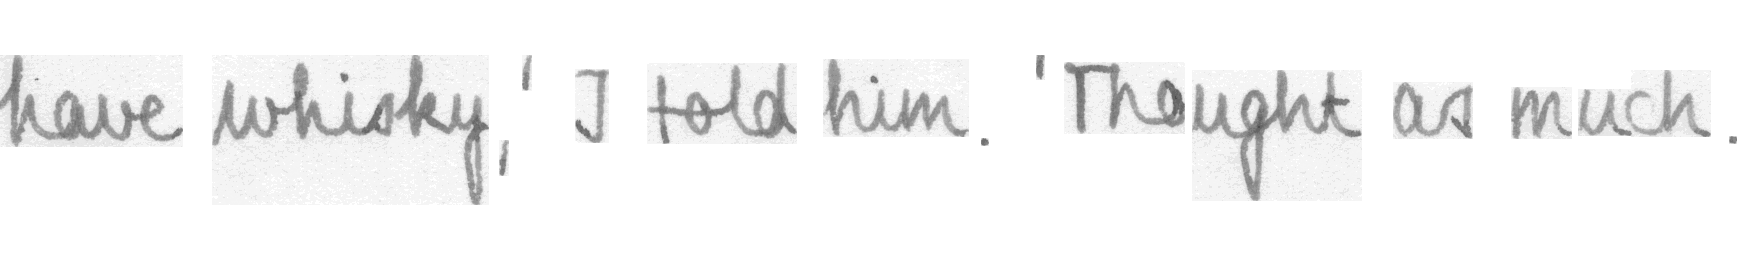 have whisky,' I told him. 'Thought as much.